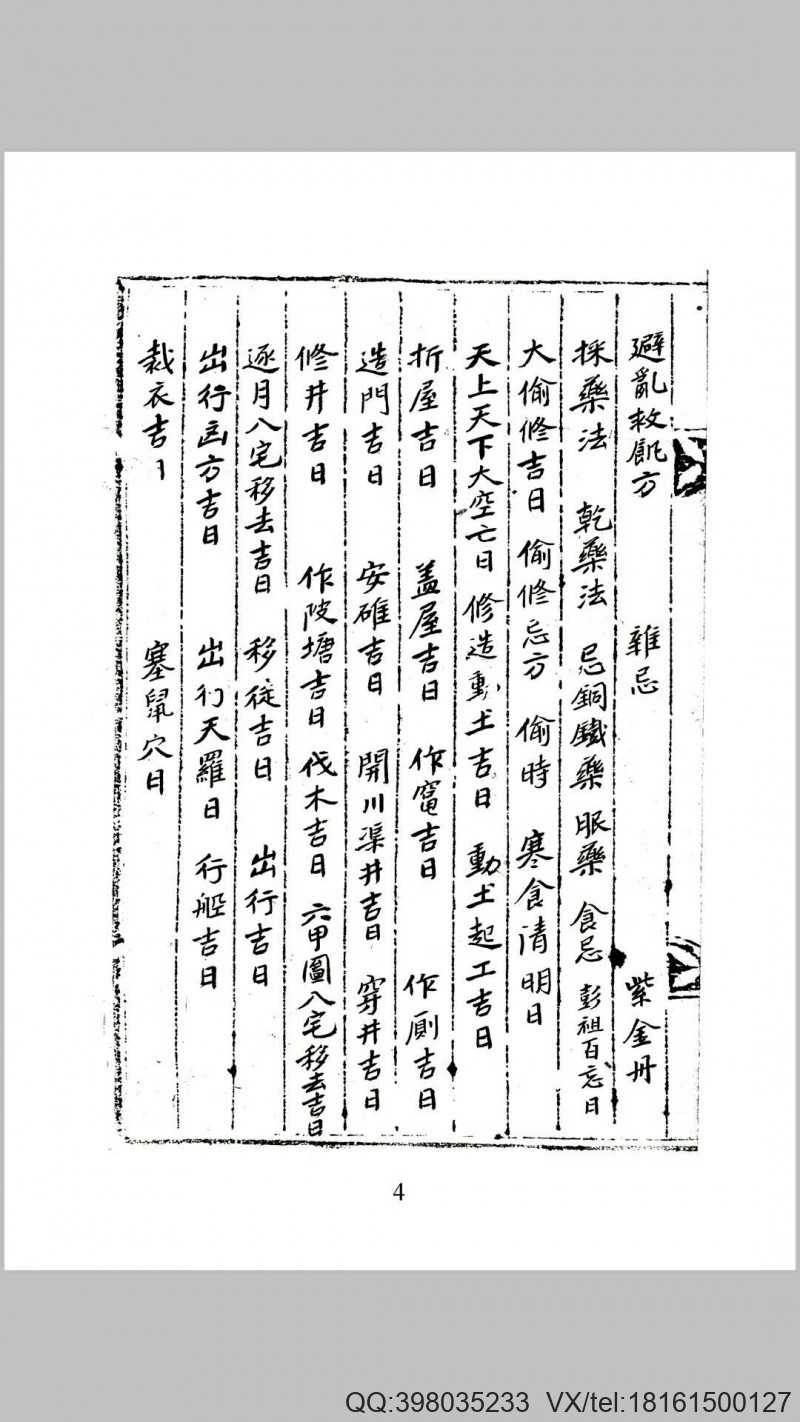 避亂救飢方 雜忌 紫金丹
採藥法 乾藥法 忌銅鐵藥 眼藥 食忌 彭祖百忌日
大偷修吉日 偷修忌方 偷時 寒食清明日
天上天下大空亡日 修造動土吉日 動土起工吉日
折屋吉日 盖屋吉日 作窀吉日 作厠吉日
造門吉日 安碓吉日 開川渠井吉日 穿井吉日
修井吉日 作陂塘吉日 伐木吉日 六甲圖八宅移去吉日
逐月八宅移去吉日 移徒吉日 出行吉日
出行函方吉日 出行天羅日 行船吉日
裁衣吉日 塞鼠穴日
4
QQ:398035233 VX/tel:18161500127